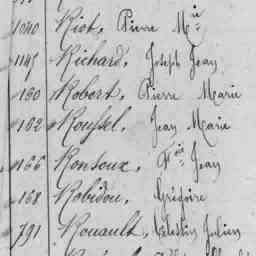 1040 Riot, Pierre Mie
1145 Richard, Joseph Jean
130 Robert, Pierre Marie
162 Roussel, Jean Marie
166 Ronsoux, Fois Jean
168 Robidou, Grégoire
791 Rouault, Célestin Julien